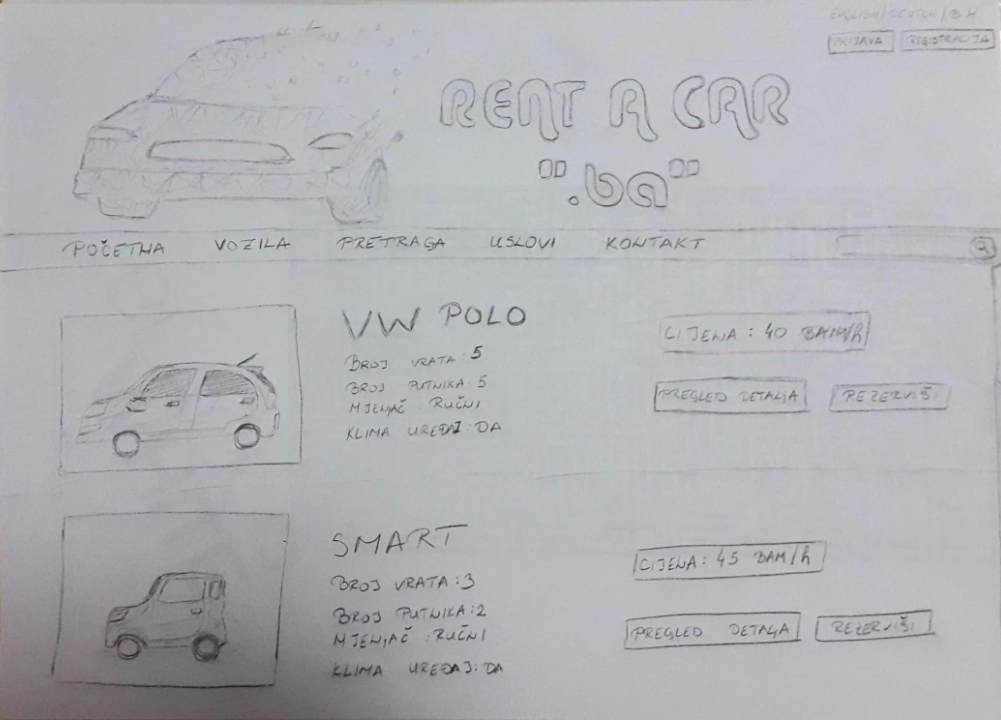 ENGLISH/DEUTCH/B.H
PRIJAVA REGISTRACIJA
RENT A CAR
".ba"
POČETNA VOZILA PRETRAGA USLOVI KONTAKT
VW POLO
BROJ VRATA: 5
BROJ PUTNIKA 5
MJENJAČ RUČNI
KLIMA UREĐAJ: DA
CIJENA: 40 BAM/h
PREGLED DETALJA REZERVIŠI
SMART
BROJ VRATA: 3
BROJ PUTNIKA: 2
MJENJAČ: RUČNI
KLIMA UREĐAJ: DA
CIJENA: 45 BAM/h
PREGLED DETALJA REZERVIŠI